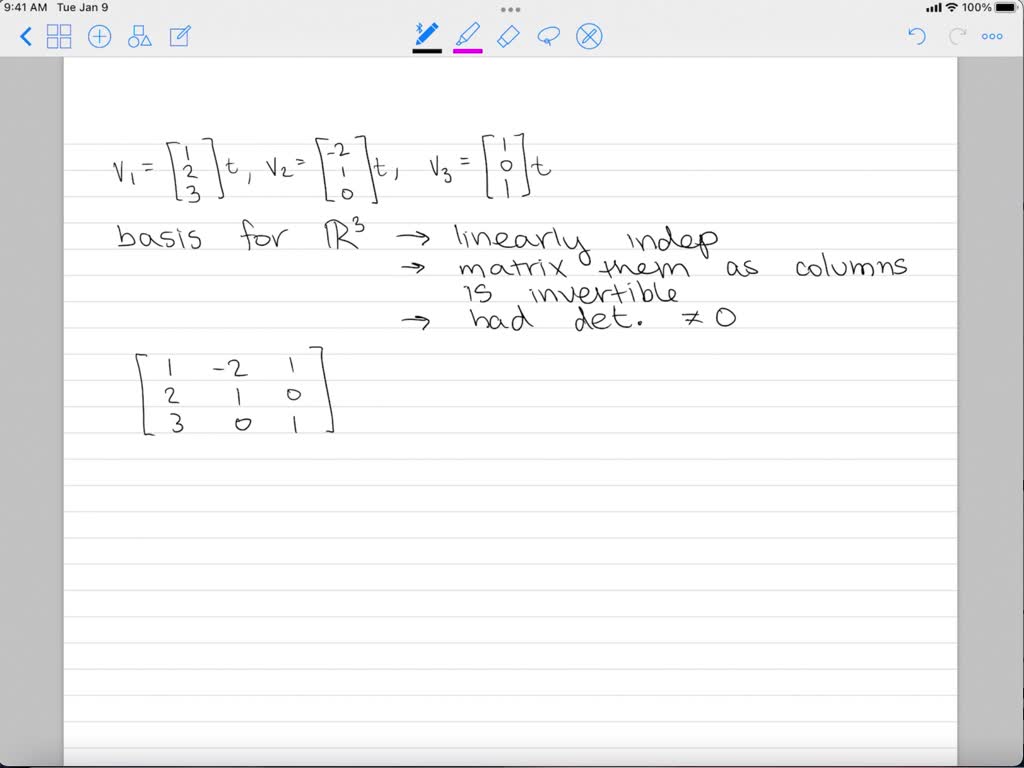 9:41 AM Tue Jan 9 100%
V₁ = [1 2 3] t, V₂ = [-2 1 0] t, V₃ = [1 0 1] t
basis for ℝ³ → linearly indep
→ matrix them as columns
is invertible
→ had det. ≠ 0
[1 -2 1
2 1 0
3 0 1]